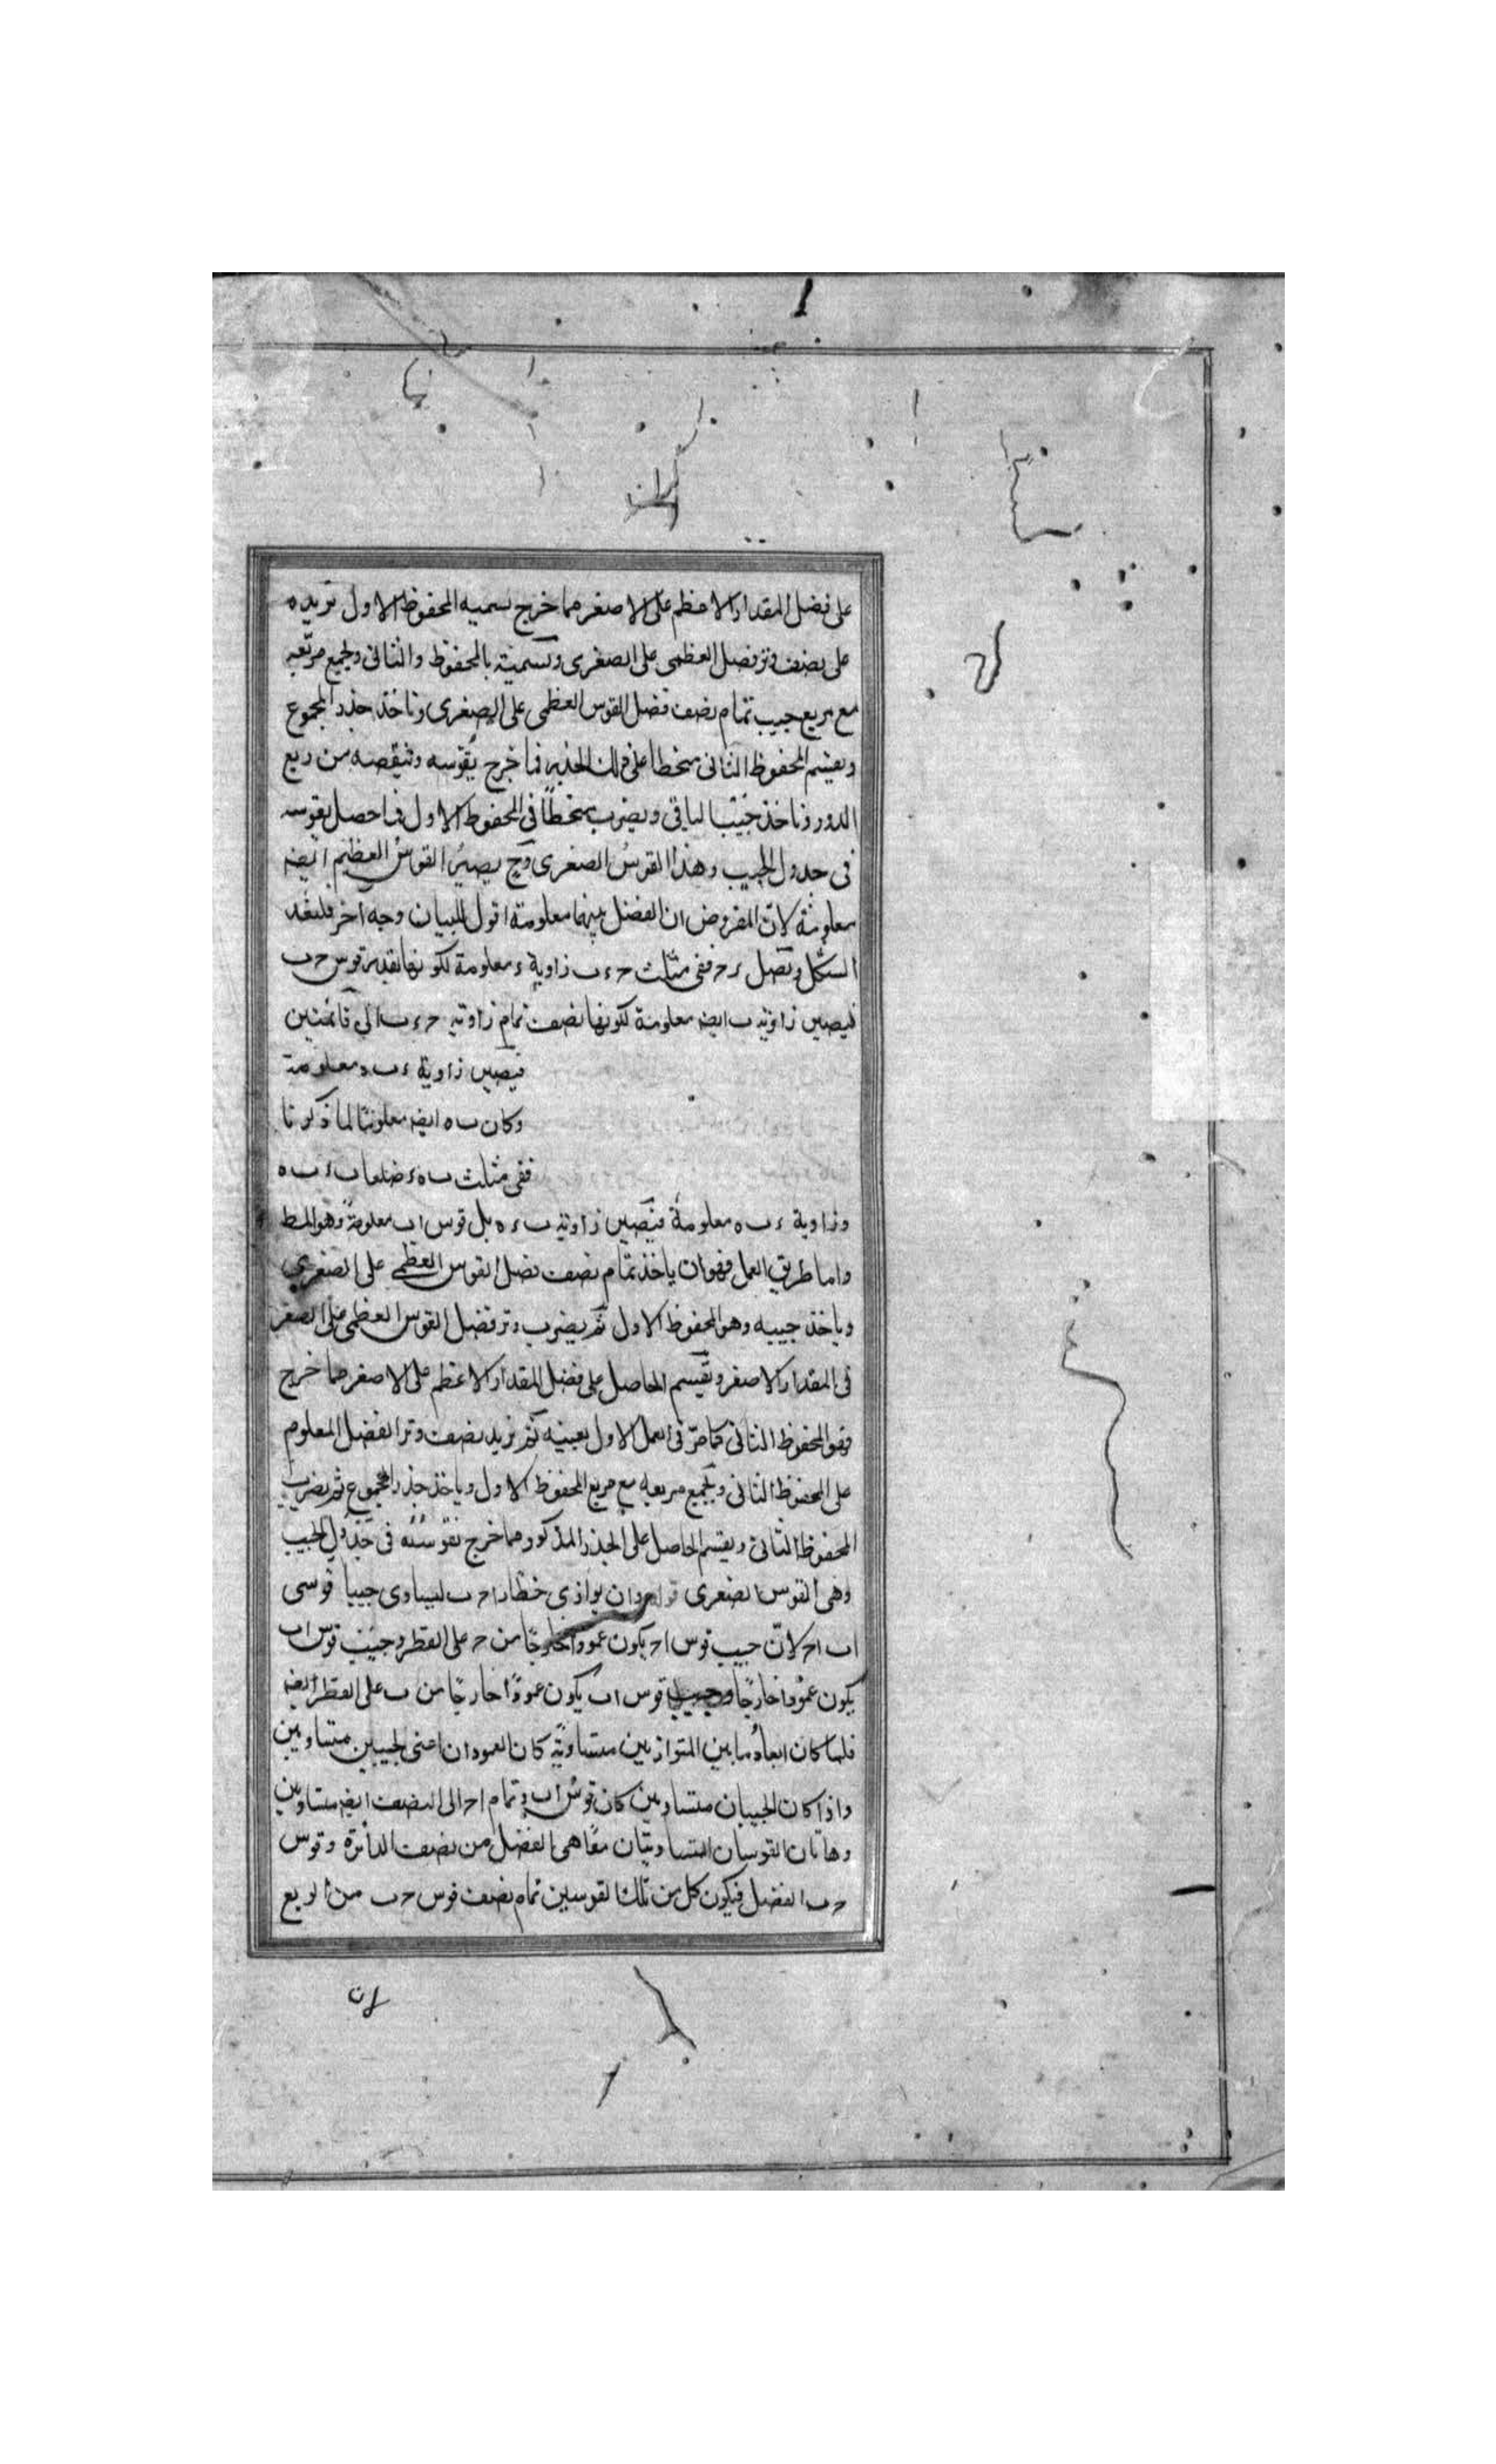 على فضل المقدار الاعظم على الاصغر فما خرج نسميه المحفوظ الاول نزيده
على نصف وتر فضل العظمى على الصغرى ونسميته بالمحفوظ والثانى ولجمع مربعه
مع مربع جيب تمام نصف فضل القوس العظمى على الصغرى وناخذ جذر المجموع
ونقسم المحفوظ الثانى منحطا على ذلك الجذر فما خرج نقوسه وننقصه من ربع
الدور وناخذ جيب الباقى ونضرب منحطًا فى المحفوظ الاول فما حصل نقوسه
فى جدول الجيب وهذا القوس الصغرى وح يصير القوس العظيم ايضه
معلومة لان المفروض ان الفضل بينهما معلومة اقول للبيان وجه آخر فلنعد
الشكل ونصل ءحـ ففى مثلث حـ ء ب زاوية ء معلومة لكونها بقدر قوس حـ ب
فيصير زاوية ب ايضه معلومة لكونها نصف تمام زاوية حـ ء ب الى قائمتين
فيصير زاوية ء ب ه معلومة
وكان ب ه ايضه معلومًا لما ذكرنا
ففى مثلث ب ه ء ضلعا ب ء ب ه
وزاوية ء ب ه معلومة فيصير زاوية ب ء ه بل قوس ا ب معلومة وهو المط
واما طريق العمل فهو ان ياخذ تمام نصف فضل القوس العظمى على الصغرى
وياخذ جيبه وهو المحفوظ الاول ثم يضرب وتر فضل القوس العظمى على الصغر
فى المقدار الاصغر ونقسم الحاصل على فضل المقدار الاعظم على الاصغر فما خرج
فهو المحفوظ الثانى كما مرّ فى العمل الاول بعينه ثم نزيد نصف وتر الفضل المعلوم
على المحفوظ الثانى ونجمع مربعه مع مربع المحفوظ الاول وياخذ جذر المجموع ثم نضرب
المحفوظ الثانى ونقسم الحاصل على الجذر المذكور فما خرج نقوسه فى جدول الجيب
وهى القوس الصغرى قوله وان يوازى خطا ء ا حـ ب ليساوى جيبا قوسى
ا ب ا حـ لانّ جيب قوس ا حـ يكون عمودا خارجًا من حـ على القطر وجيب قوس ا ب
يكون عمودا خارجًا قوس ا ب يكون عمودًا خارجًا من ب على القطر ايضه
فلما كان ابعاد ما بين المتوازيين متساوية كان العمودان اعنى الجيبين متساويين
واذا كان الجيبان متساويين كان قوس ا ب وتمام ا حـ الى النصف ايضه متساويين
وهاتان القوسان المتساويتان معًا هى الفضل من نصف الدائرة وقوس
حـ ب الفضل فيكون كل من تلك القوسين تمام نصف قوس حـ ب من الربع
لان